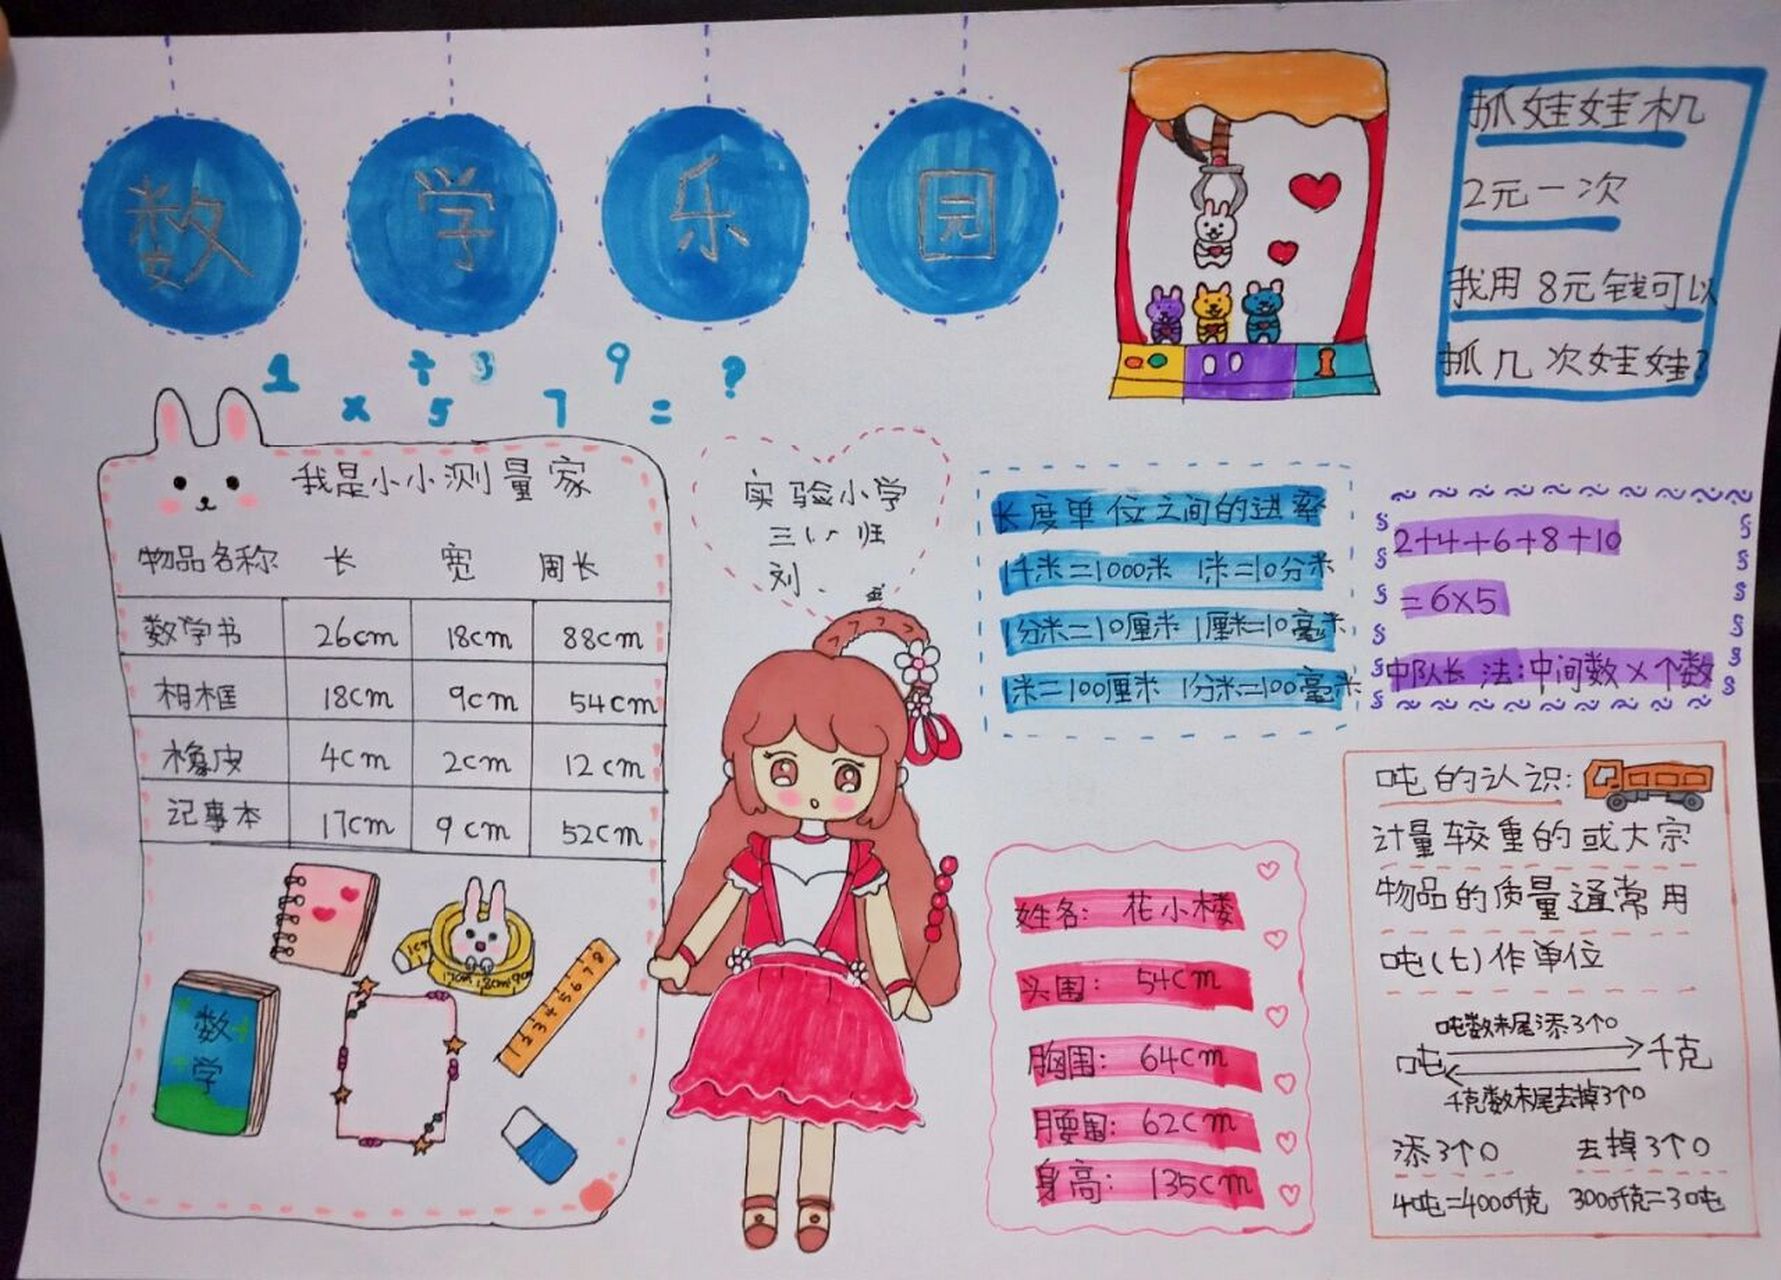 数学乐园
抓娃娃机
2元一次
我用8元钱可以
抓几次娃娃?
1 ÷ 3 9 ?
× 5 7 =
我是小小测量家
物品名称 长 宽 周长
数学书 26cm 18cm 88cm
相框 18cm 9cm 54cm
橡皮 4cm 2cm 12cm
记事本 17cm 9cm 52cm
数
学
1cm
17cm 18cm 9cm
1 2 3 4 5 6 7 8
实验小学
三
刘
长度单位之间的进率
1千米=1000米 1米=10分米
1分米=10厘米 1厘米=10毫米
1米=100厘米 1分米=100毫米
2+4+6+8+10
=6×5
中队长法:中间数×个数
姓名: 花小楼
头围: 54cm
胸围: 64cm
腰围: 62cm
身高: 135cm
吨的认识:
计量较重的或大宗
物品的质量通常用
吨(t)作单位
吨数末尾添3个0
吨 千克
千克数末尾去掉3个0
添3个0 去掉3个0
4吨=4000千克 3000千克=3吨